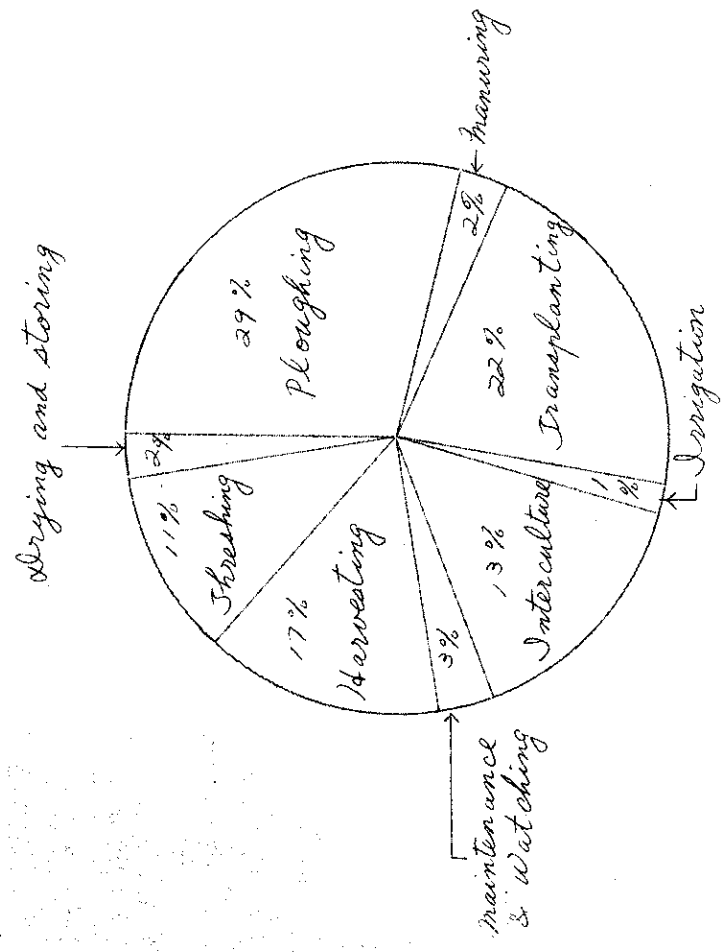 Drying and storing
29%
Ploughing
2%
Manuring
22%
Transplanting
1
%
Irrigation
13%
Interculture
3%
Maintenance
& Watching
17%
Harvesting
11%
Threshing
2%